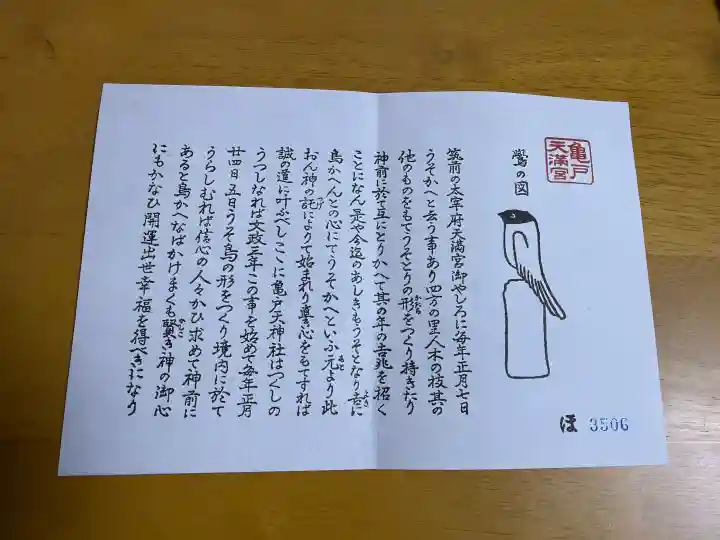 亀戸
天満宮
鷽の図
筑前の太宰府天満宮御やしろに毎年正月七日
うそかへと云う事あり四方の里人木の枝其の
他のものをもてうそとりの形をつくり持きたり
神前に於て互にとりかへて其の年の吉兆を招く
ことになん是や今迄のあしきもうそとなり吉に
鳥かへんとの心にてうそかへといふ元より此
おん神の託によりて始まれり誠心をもてすれば
誠の道に叶ふべしこゝに亀戸天神社はつくしの
うつしなれば文政三年この事を始めて毎年正月
廿四日五日うそ鳥の形をつくり境内に於て
うらしむれば信心の人々かひ求めて神前に
あると鳥かへなばかけまくも賢き神の御心
にもかなひ開運出世幸福を得べきになり
ほ 3506